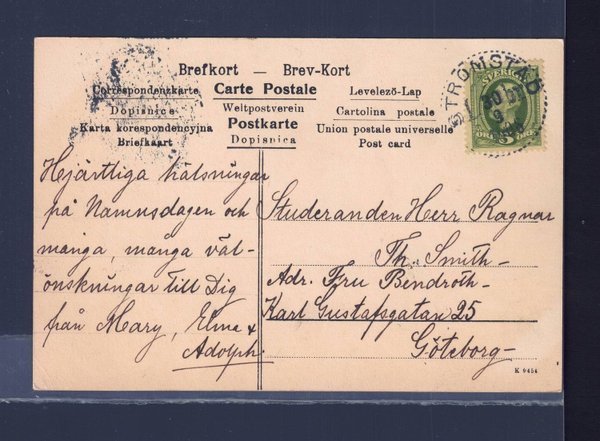 Brefkort — Brev-Kort
Correspondenzkarte
Carte Postale
Levelező-Lap
Dopisnice
Weltpostverein
Cartolina postale
Karta korespondencyjna
Postkarte
Union postale universelle
Briefkaart
Dopisnica
Post card
STRÖMSTAD
SVERIGE
5
ÖRE
ÖRE
Hjärtliga hälsningar
på Namnsdagen och
många, många väl-
önskningar till Dig
från Mary, Elma &
Adolph.
Studeranden Herr Ragnar
Th. Smith-
Adr. Fru Bendroth-
Karl Gustafsgatan 25
Göteborg-
K 9454